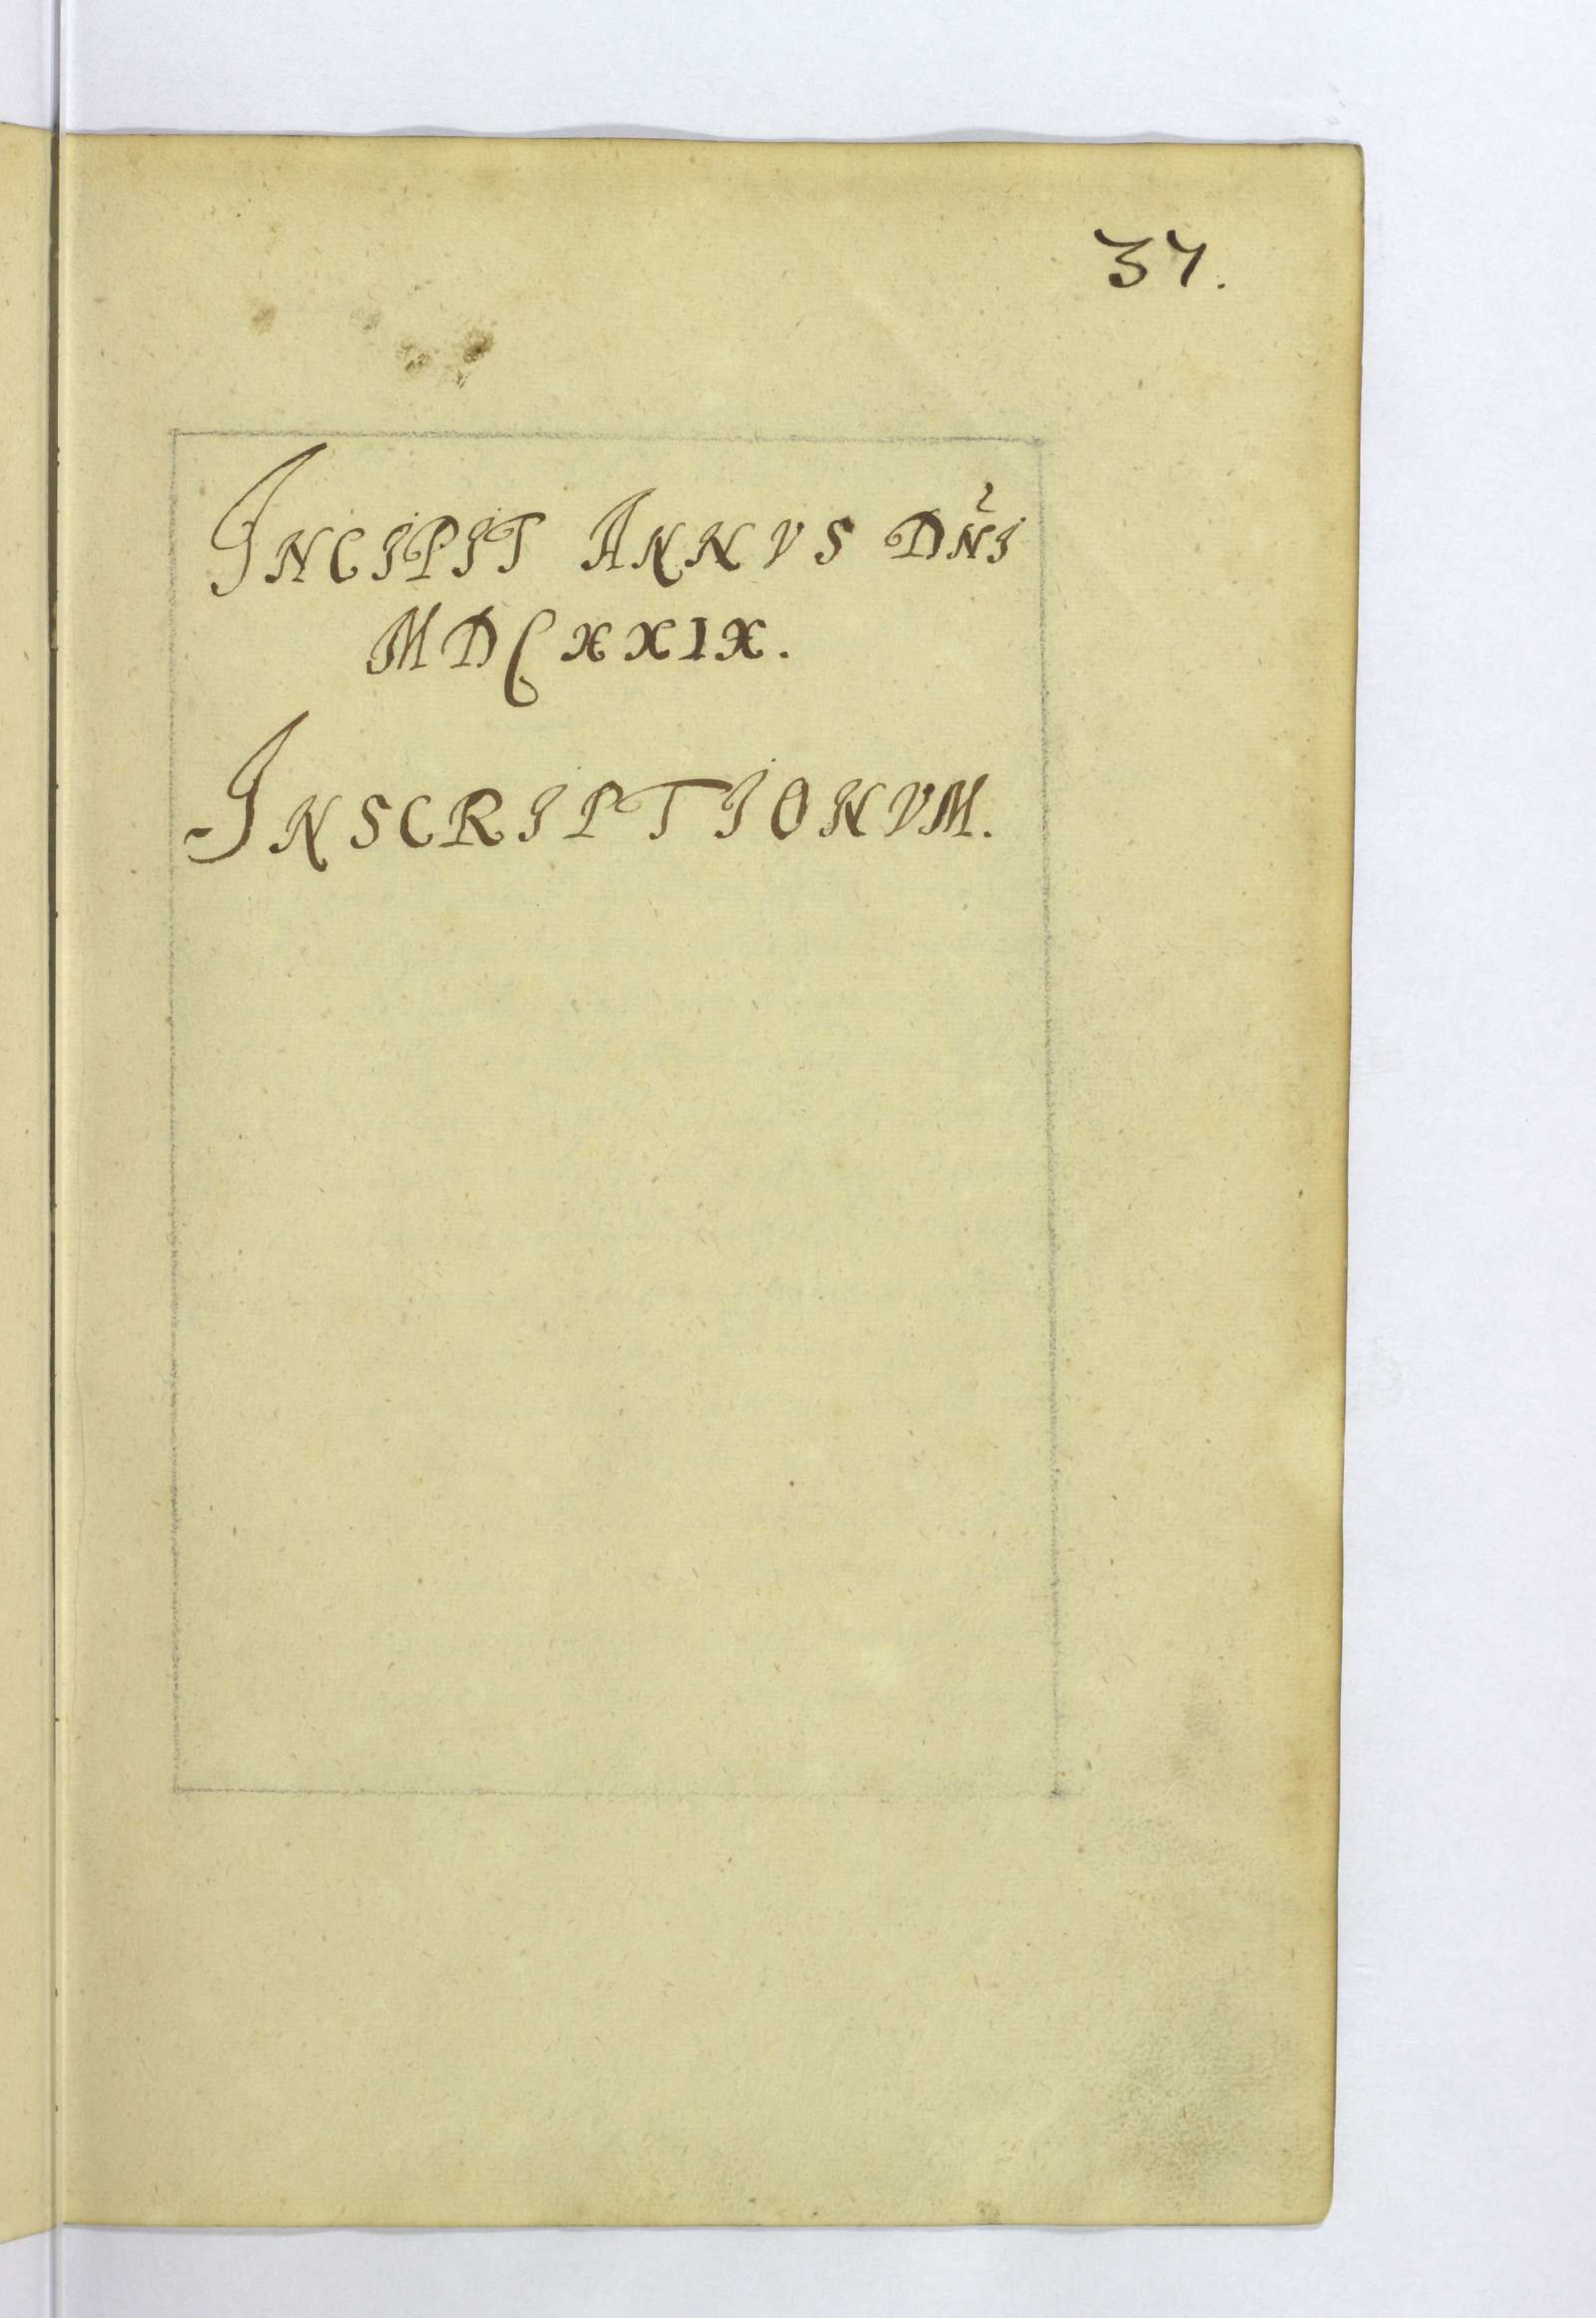 37.
INCIPIT ANNVS DÑI
MDCXXIX.
INSCRIPTIONVM.